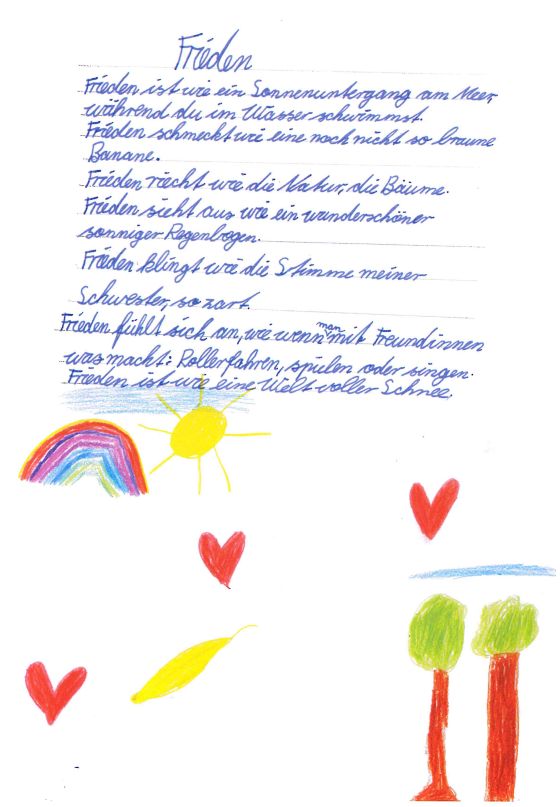 Frieden
Frieden ist wie ein Sonnenuntergang am Meer,
während du im Wasser schwimmst.
Frieden schmeckt wie eine noch nicht so braune
Banane.
Frieden riecht wie die Natur, die Bäume.
Frieden sieht aus wie ein wunderschöner
sonniger Regenbogen.
Frieden klingt wie die Stimme meiner
Schwester, so zart.
Frieden fühlt sich an, wie wenn man mit Freundinnen
was macht: Rollerfahren, spielen oder singen.
Frieden ist wie eine Welt voller Schnee.